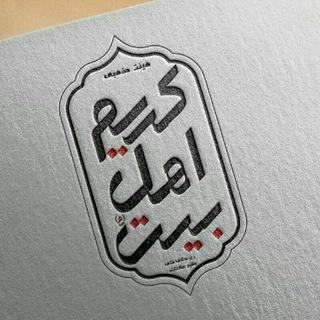 هیئت مذهبی
کریم
اهل
بیت (ع)